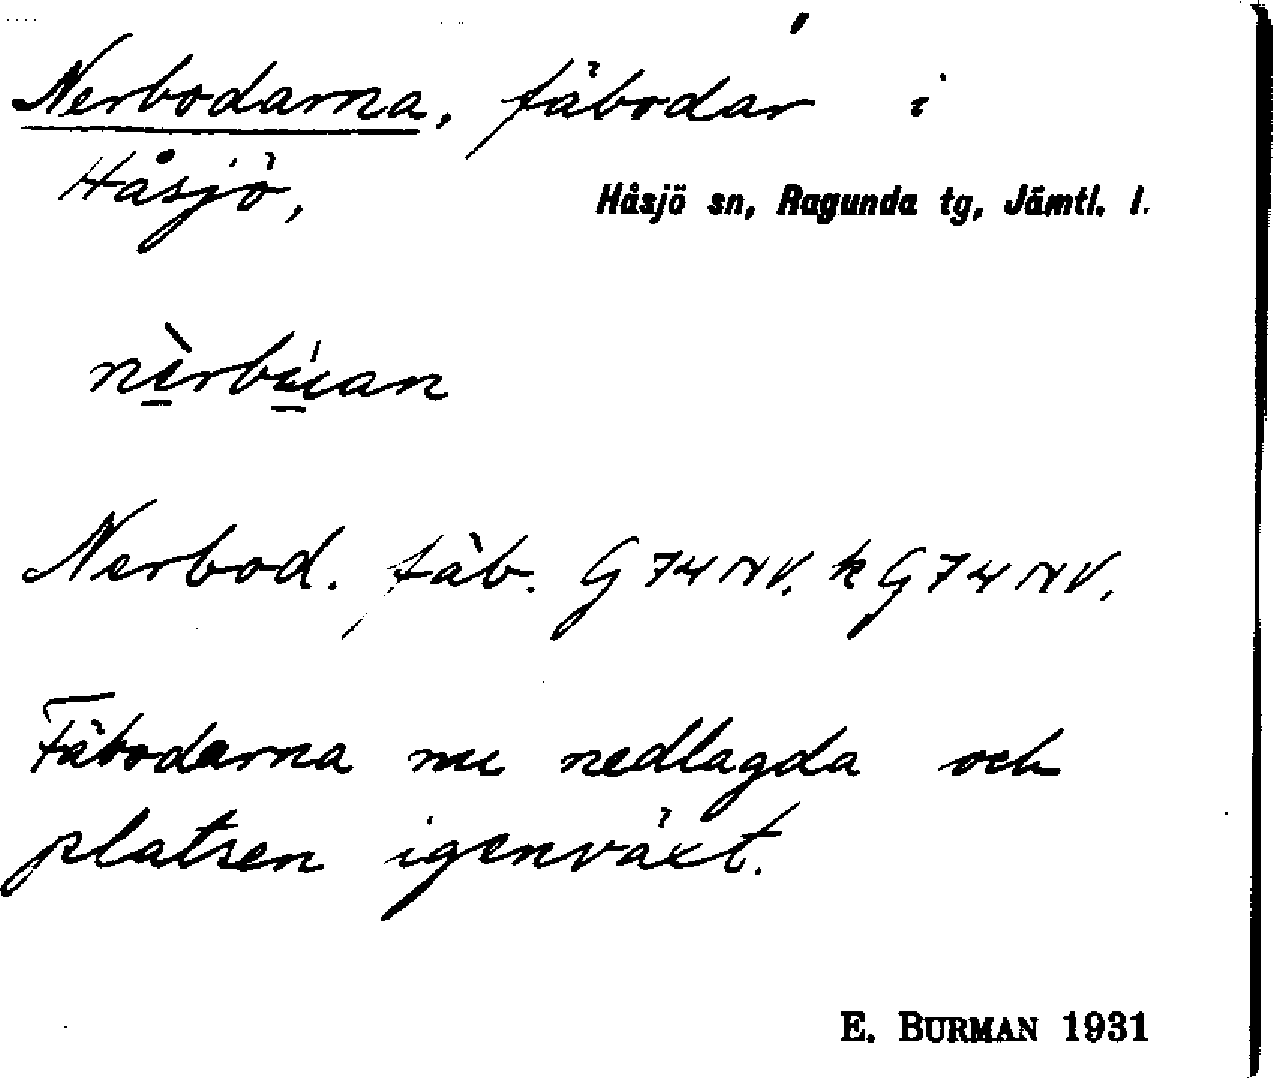 Nerbodarna, fäbodar i
Håsjö,
Håsjö sn, Ragunda tg, Jämtl. l.
nèrbúan
Nerbod. fäb. G 74 NV. k G 74 NV.
Fäbodarna nu nedlagda och
platsen igenväxt.
E. BURMAN 1931